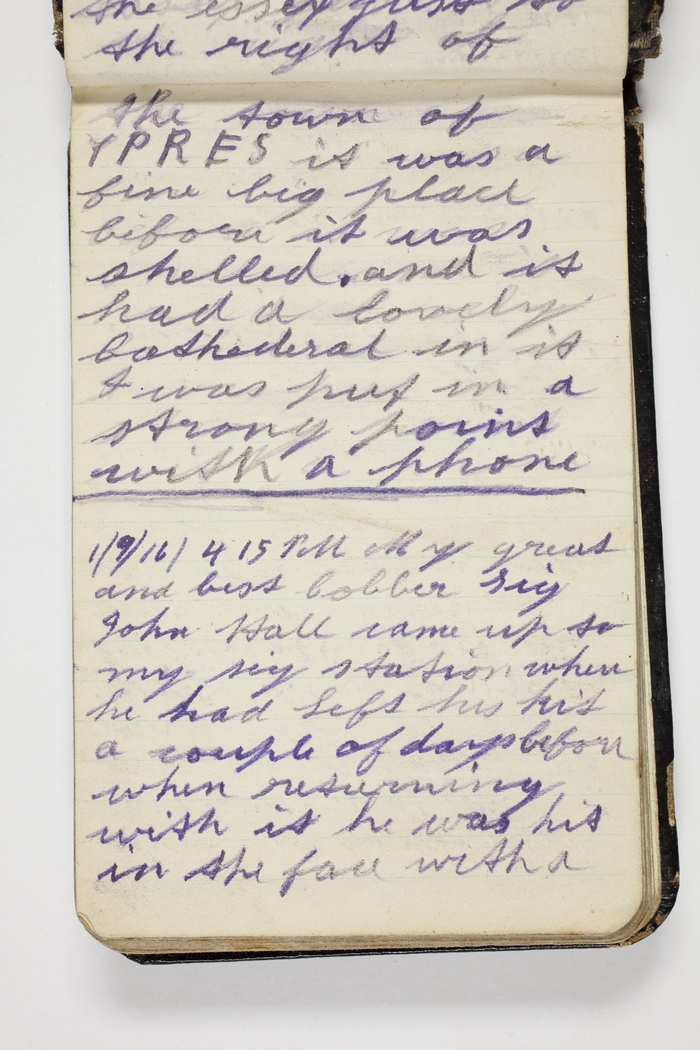 the essex just to
the right of
the town of
YPRES it was a
fine big place
before it was
shelled. and it
had a lovely
Cathederal in it
I was put in a
strong point
with a phone
1/9/16/ 4 15 PM My great
and best cobber Sig
John Hall came up to
my sig station when
he had left his kit
a couple of days before
when returning
with it he was hit
in the face with a